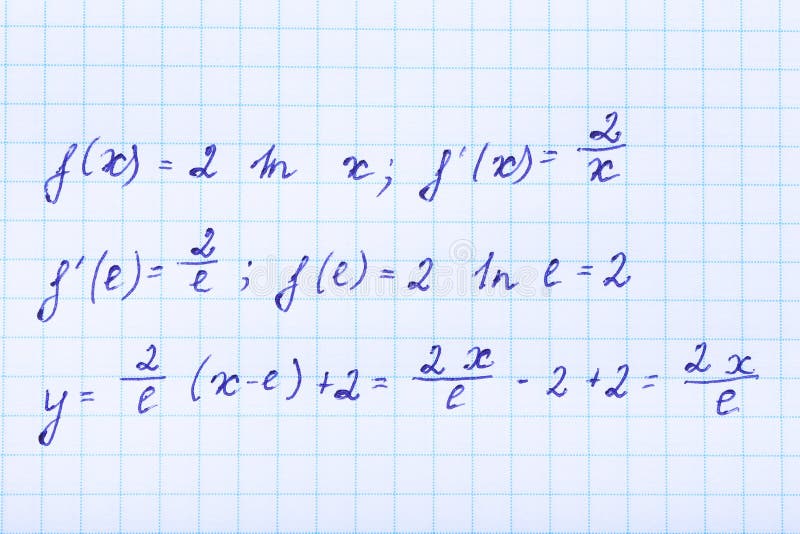 f(x) = 2 ln x; f'(x) = 2/x
f'(e) = 2/e; f(e) = 2 ln e = 2
y = 2/e (x-e)+2 = 2x/e - 2 +2 = 2x/e